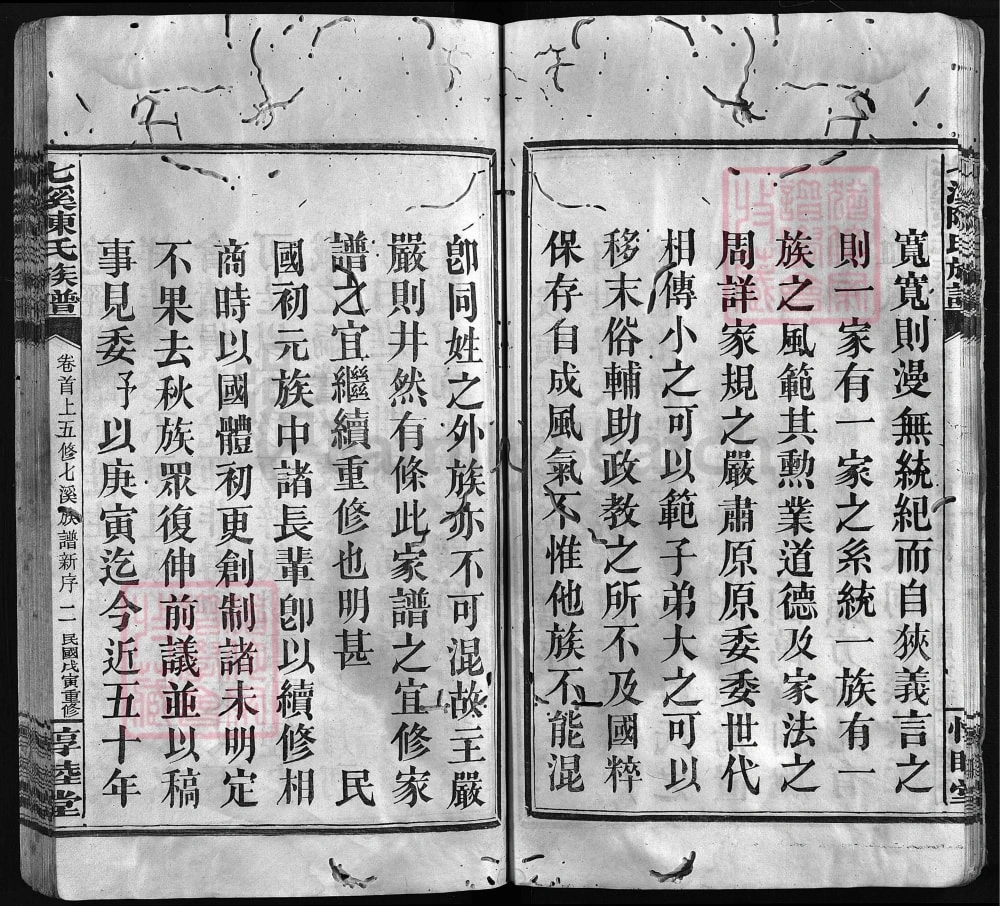 寬寬則漫無統紀而自狹義言之
則一家有一家之系統一族有一
族之風範其勳業道德及家法之
周詳家規之嚴肅原原委委世代
相傳小之可以範子弟大之可以
移末俗輔助政教之所不及國粹
保存自成風氣不惟他族不能混
卽同姓之外族亦不可混故主嚴
嚴則井然有條此家譜之宜修家
譜之宜繼續重修也明甚 民
國初元族中諸長輩卽以續修相
商時以國體初更創制諸未明定
不果去秋族眾復伸前議並以稿
事見委予以庚寅迄今近五十年
七溪陳氏族譜
卷首上五修七溪族譜新序
二
民國戊寅重修
惇睦堂